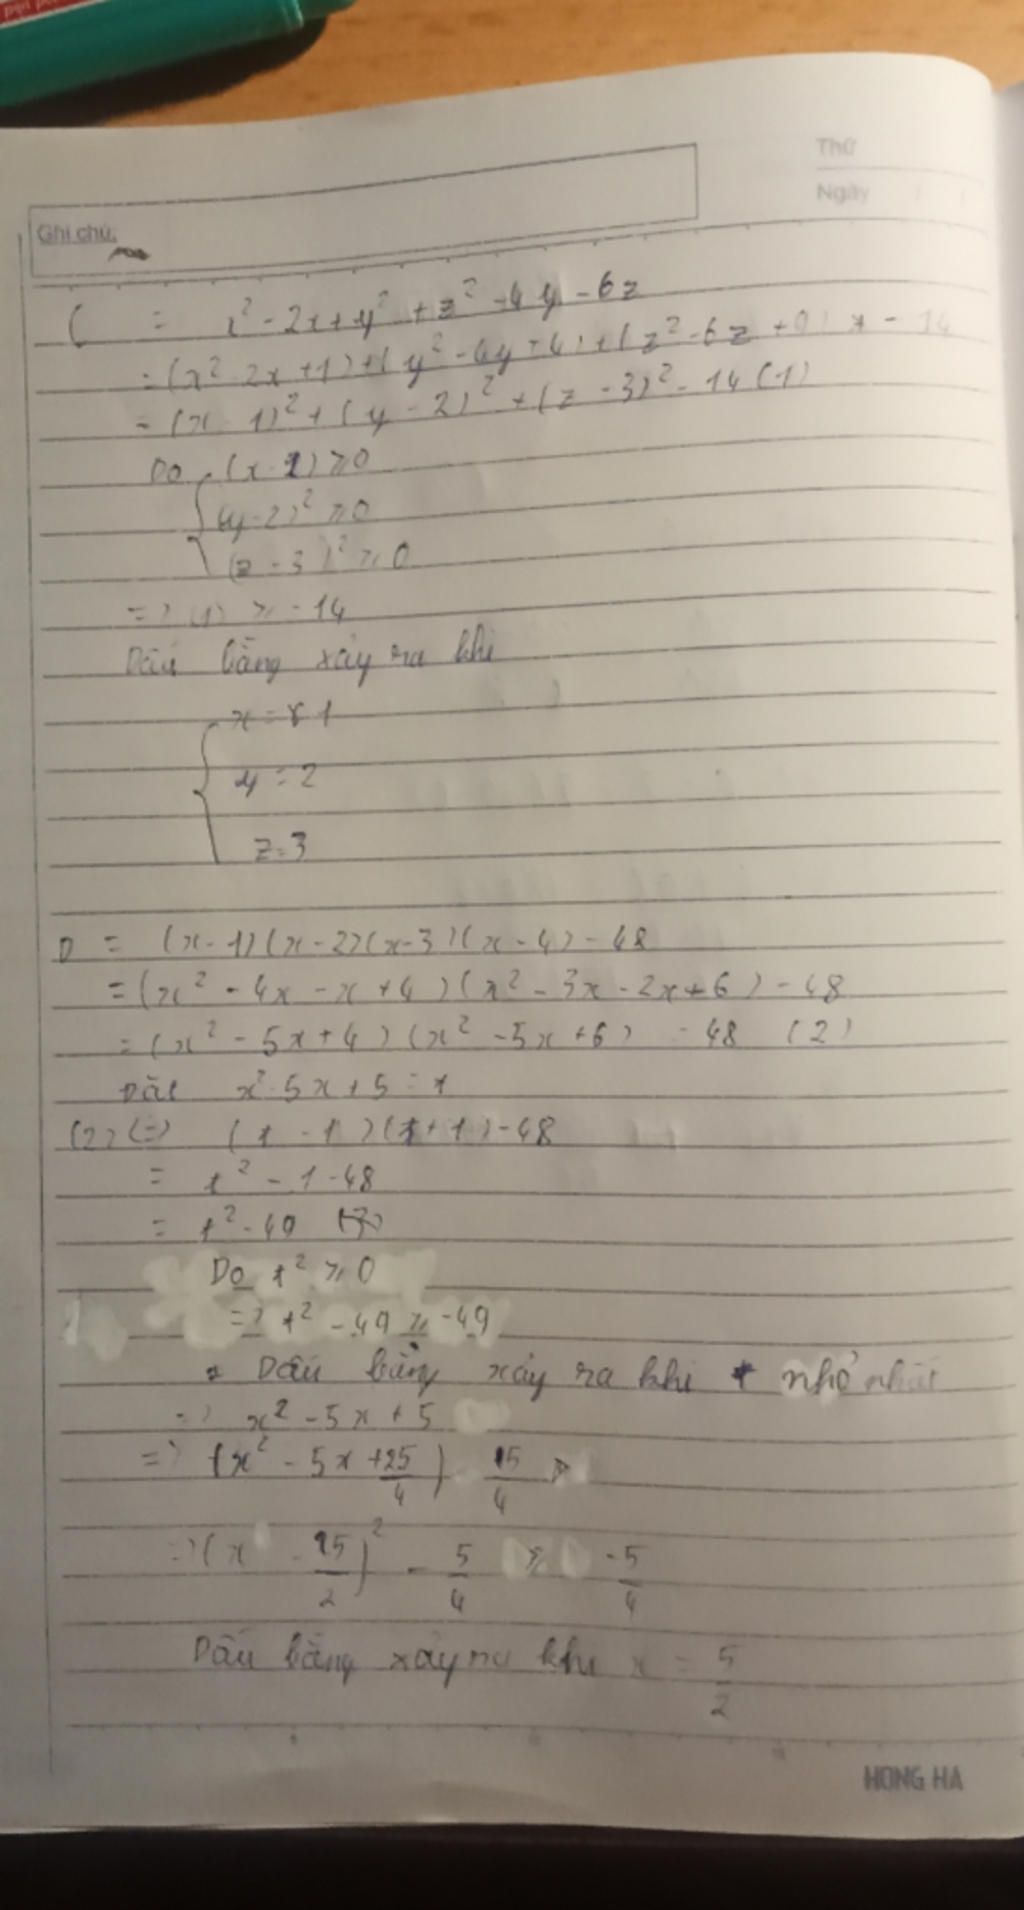 Thứ
Ngày
Ghi chú:
C = x² - 2x + y² + z² - 4y - 6z
= (x² - 2x + 1) + (y² - 4y + 4) + (z² - 6z + 9) - 14
= (x - 1)² + (y - 2)² + (z - 3)² - 14 (1)
Do (x - 1) ≥ 0
(y - 2)² ≥ 0
(z - 3)² ≥ 0
=> (1) ≥ -14
Dấu bằng xảy ra khi
x = 1
y = 2
z = 3
D = (x - 1)(x - 2)(x - 3)(x - 4) - 48
= (x² - 4x - x + 4)(x² - 3x - 2x + 6) - 48
= (x² - 5x + 4)(x² - 5x + 6) - 48 (2)
Đặt x² - 5x + 5 = t
(2) (=) (t - 1)(t + 1) - 48
= t² - 1 - 48
= t² - 49
Do t² ≥ 0
=> t² - 49 ≥ -49
Dấu bằng xảy ra khi t nhỏ nhất
=> x² - 5x + 5
=> (x² - 5x + 25/4) 15/4
=> (x - 15/2)² - 5/4 ≥ -5/4
Dấu bằng xảy ra khi x = 5/2
HONG HA